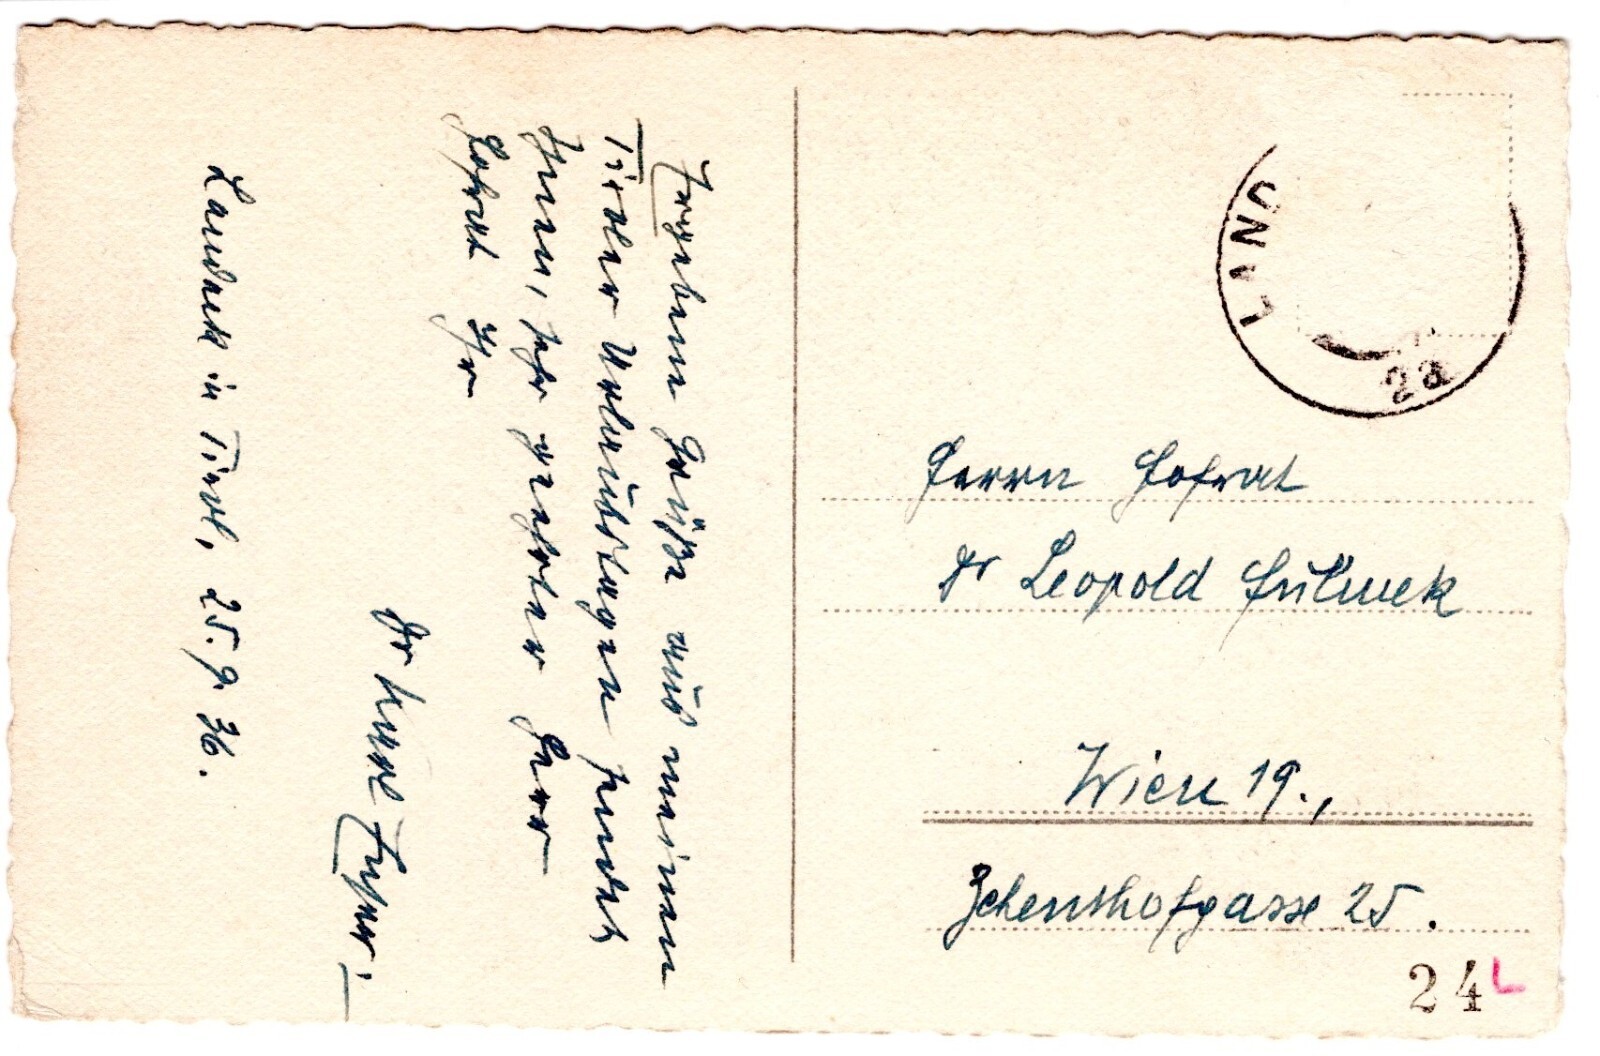 Ergebene Grüße aus meinen
Tiroler Urlaubstagen sendet
Ihnen, sehr geehrter Herr
Hofrat Ihr
Dr Karl
Landeck in Tirol, 25.9.36.
LAND
2a
Herrn Hofrat
Dr Leopold
Wien 19.,
Zehenthofgasse 25.
24 L